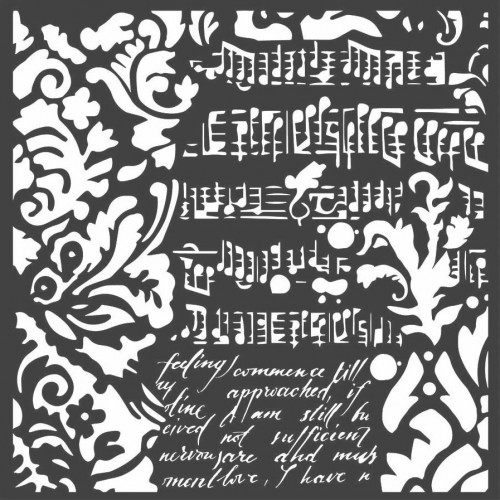 feeling commence till
ay approached, if
dine I am still bu
eived not sufficient
nervous are and mus
ment love, I have n